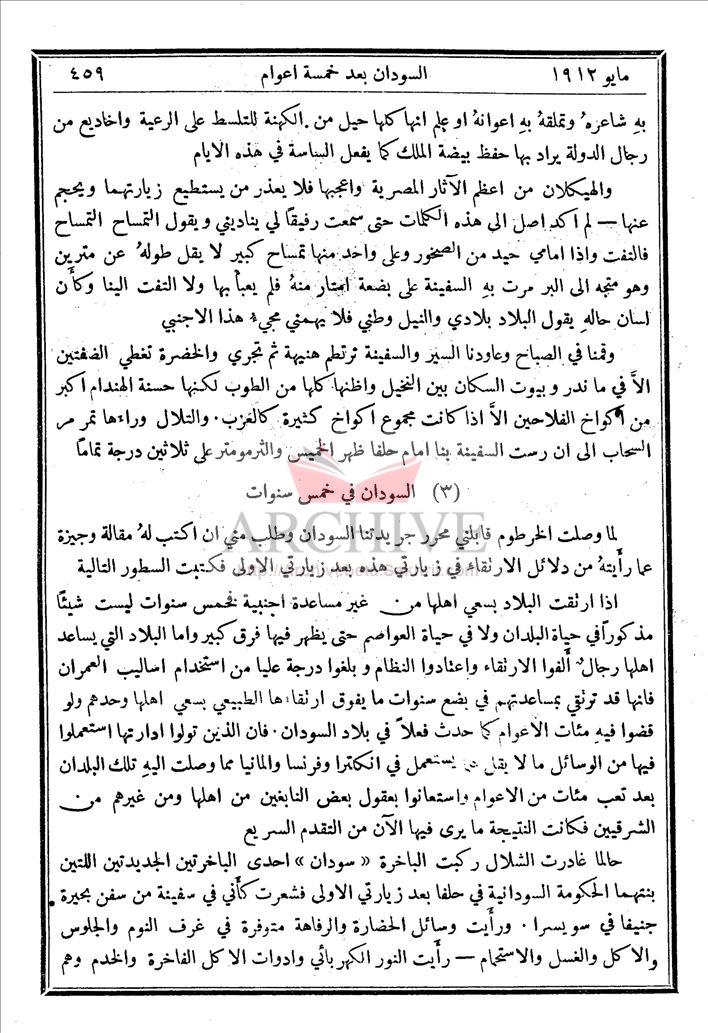 مايو ١٩١٢ السودان بعد خمسة اعوام ٤٥٩
بهِ شاعرهُ وتملقهُ بهِ اعوانهُ او علم انها كلها حيل من الكهنة للتلسط على الرعية واخاديع من
رجال الدولة يراد بها حفظ بيضة الملك كما يفعل الساسة في هذه الايام
والهيكلان من اعظم الآثار المصرية واعجبها فلا يعذر من يستطيع زيارتهما ويحجم
عنها — لم اكد اصل الى هذه الكلمات حتى سمعت رفيقًا لي يناديني و يقول التمساح التمساح
فالتفت واذا امامي حيد من الصخور وعلى واحد منها تمساح كبير لا يقل طولهُ عن مترين
وهو متجه الى البر مرت بهِ السفينة على بضعة امتار منهُ فلم يعبأ بها ولا التفت الينا وكأن
لسان حالهِ يقول البلاد بلادي والنيل وطني فلا يهمني مجيء هذا الاجنبي
وقمنا في الصباح وعاودنا السير والسفينة ترتطم هنيهة ثم تجري والخضرة تغطي الضفتين
الاَّ في ما ندر و بيوت السكان بين النخيل واظنها كلها من الطوب لكنها حسنة الهندام اكبر
من اكواخ الفلاحين الاَّ اذا كانت مجموع اكواخ كثيرة كالعزب . والتلال وراءها تمر مر
السحاب الى ان رست السفينة بنا امام حلفا ظهر الخميس والثرمومتر على ثلاثين درجة تمامًا
(٣) السودان في خمس سنوات
ARCHIVE
لما وصلت الخرطوم قابلني محرر جريدتنا السودان وطلب مني ان اكتب لهُ مقالة وجيزة
عما رأيتهُ من دلائل الارتقاء في زيارتي هذه بعد زيارتي الاولى فكتبت السطور التالية
اذا ارتقت البلاد بسعي اهلها من غير مساعدة اجنبية فخمس سنوات ليست شيئًا
مذكورًا في حياة البلدان ولا في حياة العواصم حتى يظهر فيها فرق كبير واما البلاد التي يساعد
اهلها رجالٌ ألفوا الارتقاء واعتادوا النظام و بلغوا درجة عليا من استخدام اساليب العمران
فانها قد ترتقي بمساعدتهم في بضع سنوات ما يفوق ارتقاءها الطبيعي بسعي اهلها وحدهم ولو
قضوا فيهِ مئات الاعوام كما حدث فعلاً في بلاد السودان . فان الذين تولوا ادارتها استعملوا
فيها من الوسائل ما لا يقل عما يستعمل في انكلترا وفرنسا والمانيا مما وصلت اليهِ تلك البلدان
بعد تعب مئات من الاعوام واستعانوا بعقول بعض النابغين من اهلها ومن غيرهم من
الشرقيين فكانت النتيجة ما يرى فيها الآن من التقدم السريع
حالما غادرت الشلال ركبت الباخرة « سودان » احدى الباخرتين الجديدتين اللتين
بنتهما الحكومة السودانية في حلفا بعد زيارتي الاولى فشعرت كأني في سفينة من سفن بحيرة
جنيفا في سويسرا . ورأيت وسائل الحضارة والرفاهة متوفرة في غرف النوم والجلوس
والاكل والغسل والاستحمام — رأيت النور الكهربائي وادوات الاكل الفاخرة والخدم وهم